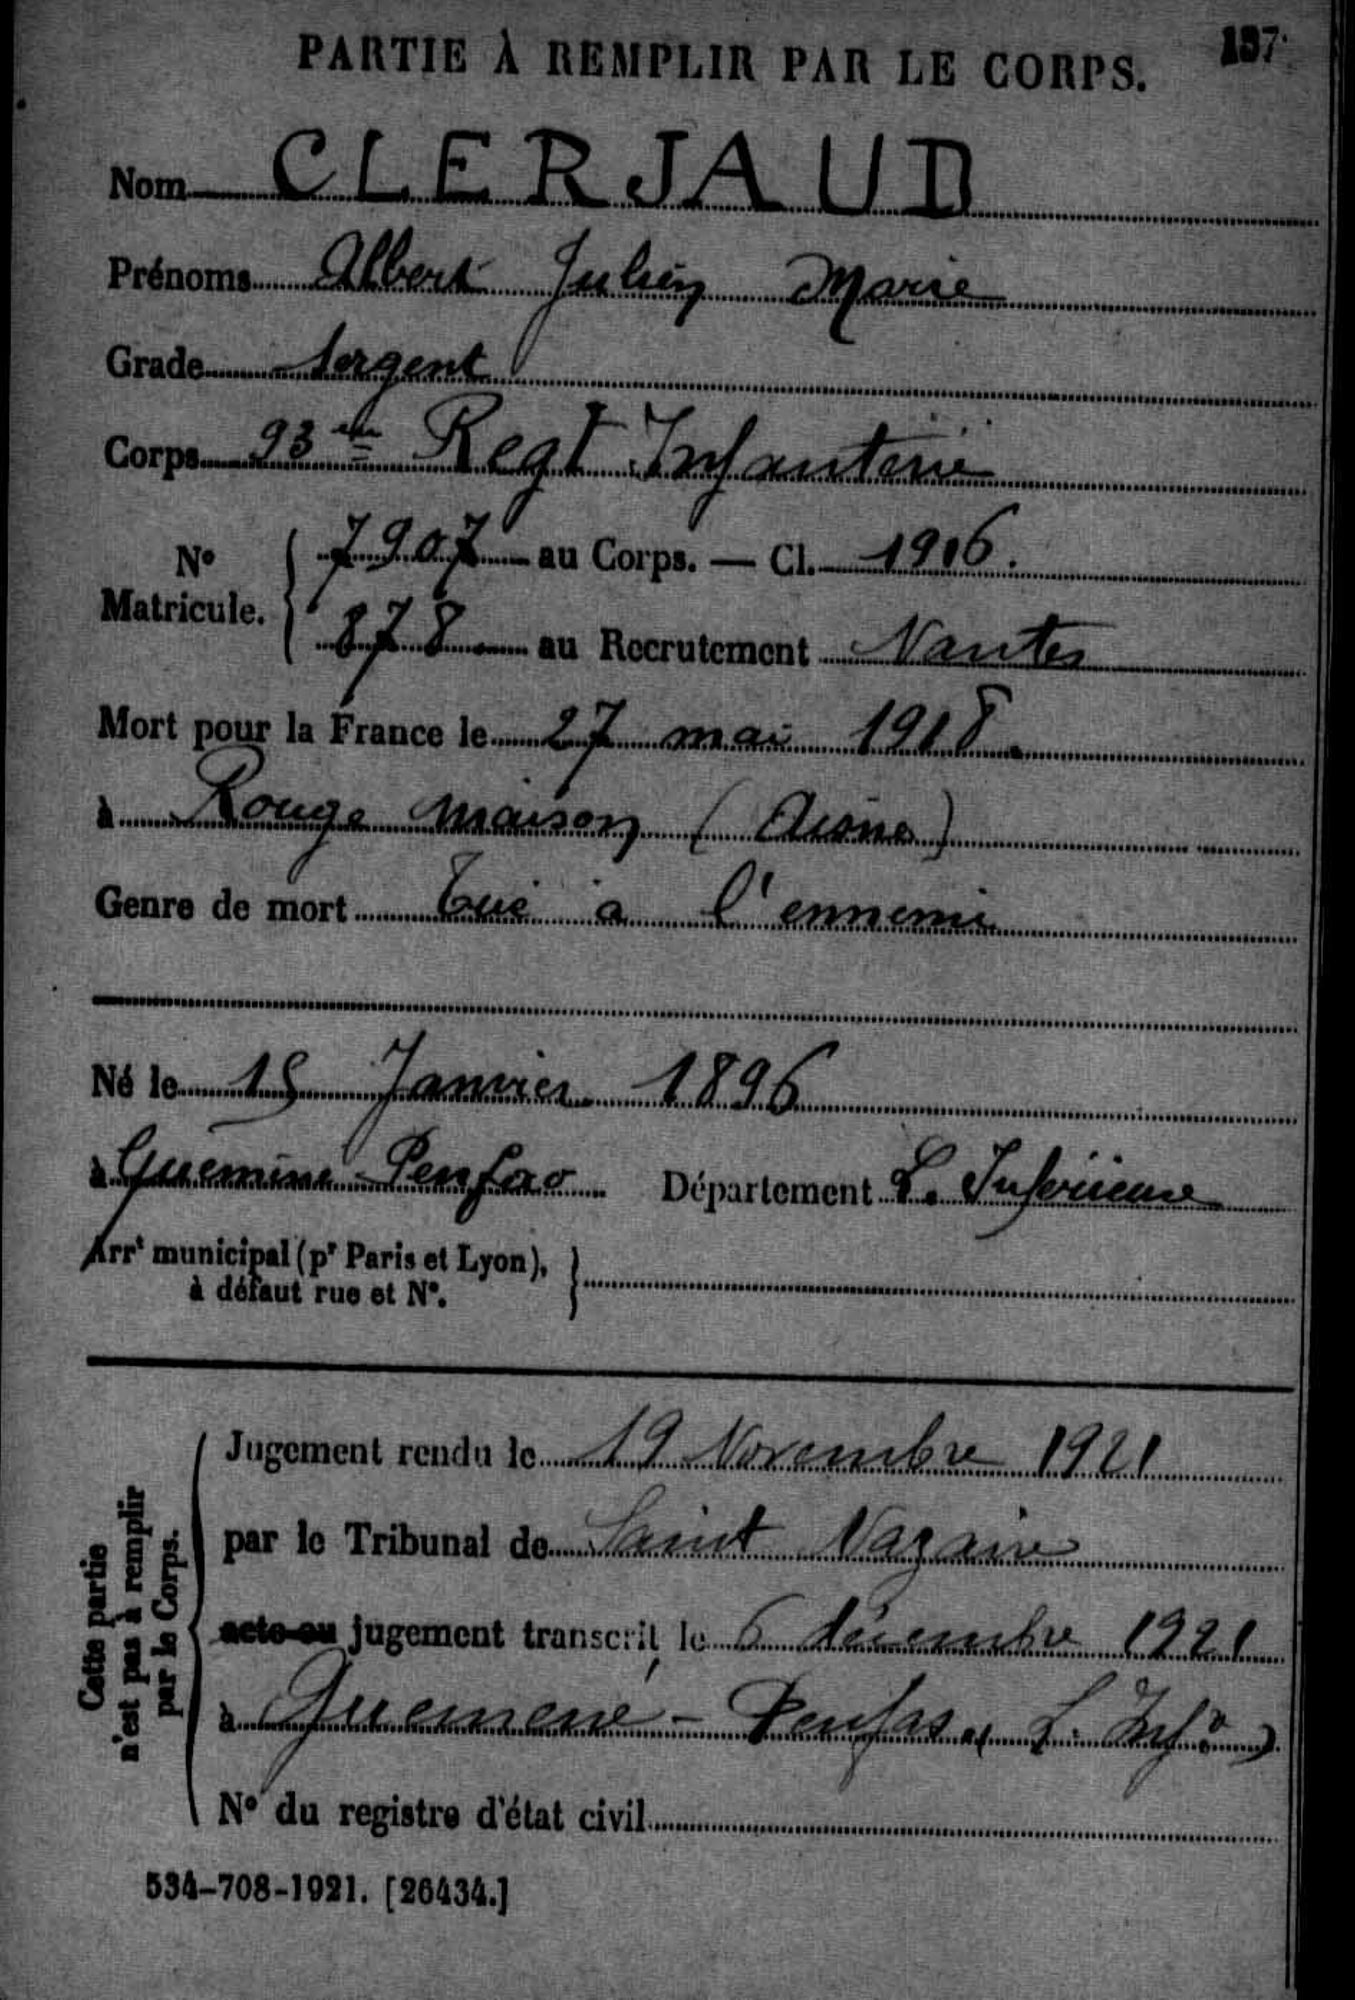 PARTIE À REMPLIR PAR LE CORPS. 137
Nom CLERJAUD
Prénoms Albert Julien Marie
Grade Sergent
Corps 93me Regt Infanterie
No Matricule. { 7907 au Corps. — Cl. 1916.
878 au Recrutement Nantes
Mort pour la France le 27 mai 1918.
à Rouge Maison (Aisne)
Genre de mort Tué à l'ennemi
Né le 15 Janvier 1896
à Guémené Penfao Département L. Inférieure
Arrt municipal (pr Paris et Lyon), à défaut rue et No. }
Cette partie n'est pas à remplir par le Corps.
Jugement rendu le 19 Novembre 1921
par le Tribunal de Saint Nazaire
acte ou jugement transcrit le 6 décembre 1921
à Guemené-Penfao (L. Infre)
No du registre d'état civil
534-708-1921. [26434.]